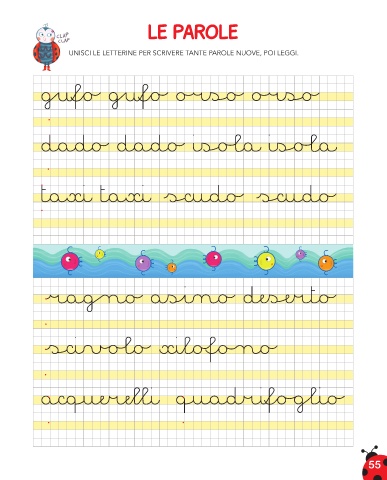 LE PAROLE
CLAP
CLAP
UNISCI LE LETTERINE PER SCRIVERE TANTE PAROLE NUOVE, POI LEGGI.
gufo gufo orso orso
dado dado isola isola
taxi taxi scudo scudo
ragno asino deserto
scivolo xilofono
acquerelli quadrifoglio
55